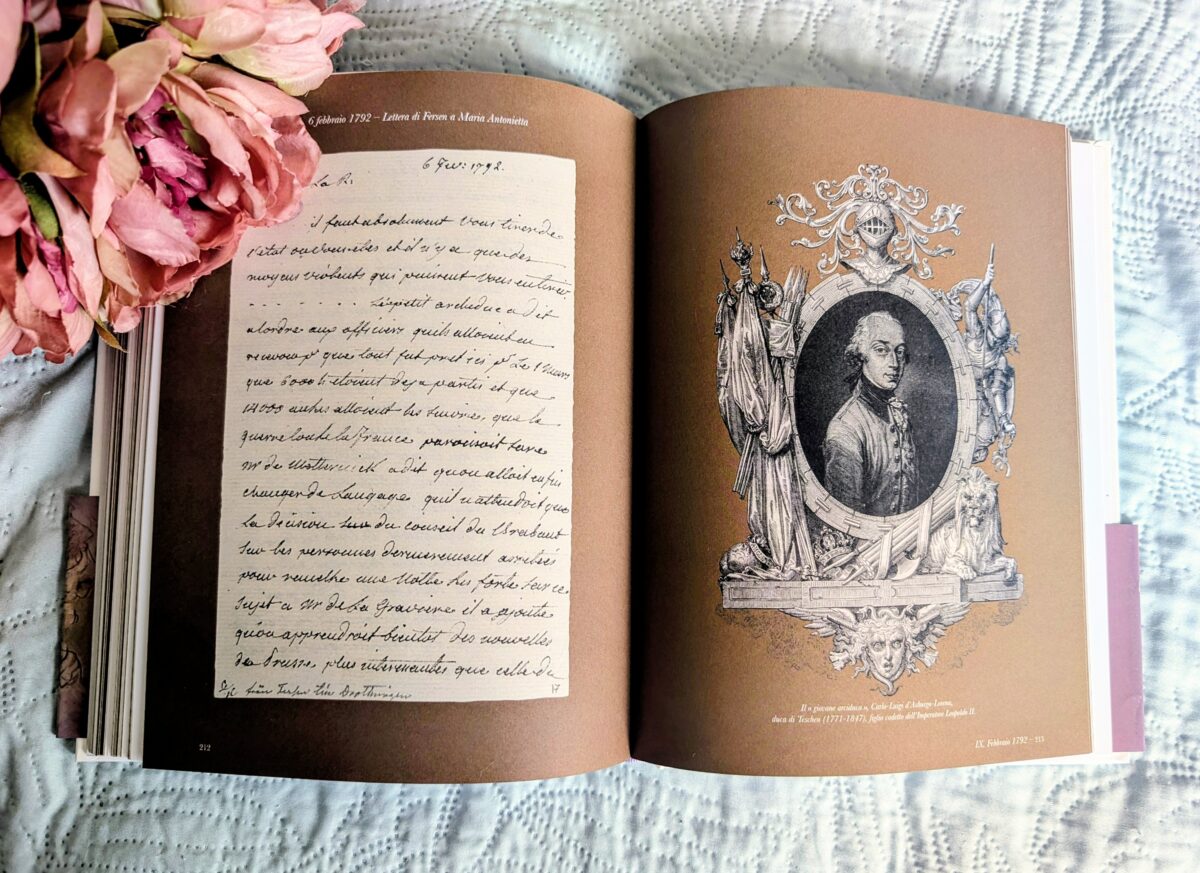 6 febbraio 1792 – Lettera di Fersen a Maria Antonietta
6 Fev: 1792.
La R:
il faut absolument vous tirer de
l'etat ou vous etes et il n'y a que des
moyens violents qui puissent vous en tirer
. . . . . . . . Le petit archeduc a dit
a lordre aux officiers quils alloient en
que tout fut pret ici p. Le 1 Mars
que 6000 h etoient deja partis et que
14000 autres alloient les suivre, que la
guerre toute la France paroissoit faire
Mr de Metternick a dit quon alloit enfin
changer de Langage quil n'attendoit que
la decision du conseil du Brabant
sur les personnes dernierement arretés
pour remettre une Notte tres forte sur ce
sujet a Mr de La Graviere il a ajouté
quon apprendroit bientot des nouvelles
de Prusse plus interessantes que celle du
från Fersen till Drottningen
17
212
Il « giovane arciduca », Carlo-Luigi d'Asburgo-Lorena,
duca di Teschen (1771-1847), figlio cadetto dell'Imperatore Leopoldo II.
IX. Febbraio 1792 – 213